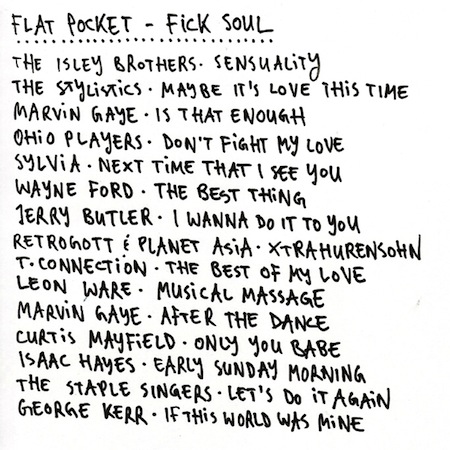 FLAT POCKET - FICK SOUL
THE ISLEY BROTHERS · SENSUALITY
THE STYLISTICS · MAYBE IT'S LOVE THIS TIME
MARVIN GAYE · IS THAT ENOUGH
OHIO PLAYERS · DON'T FIGHT MY LOVE
SYLVIA · NEXT TIME THAT I SEE YOU
WAYNE FORD · THE BEST THING
JERRY BUTLER · I WANNA DO IT TO YOU
RETROGOTT & PLANET ASIA · XTRAHURENSOHN
T-CONNECTION · THE BEST OF MY LOVE
LEON WARE · MUSICAL MASSAGE
MARVIN GAYE · AFTER THE DANCE
CURTIS MAYFIELD · ONLY YOU BABE
ISAAC HAYES · EARLY SUNDAY MORNING
THE STAPLE SINGERS · LET'S DO IT AGAIN
GEORGE KERR · IF THIS WORLD WAS MINE